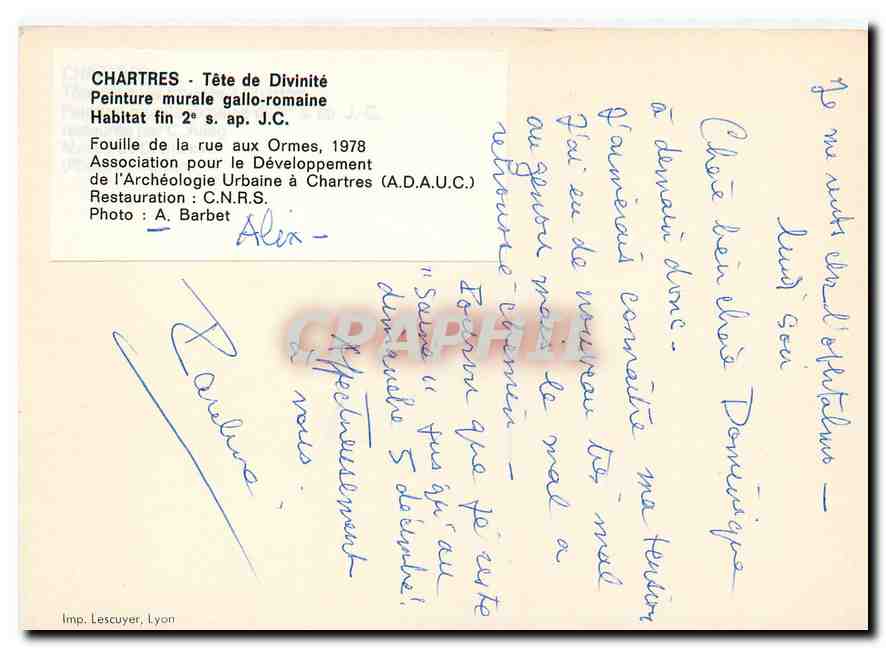 CHARTRES - Tête de Divinité
Peinture murale gallo-romaine
Habitat fin 2e s. ap. J.C.
Fouille de la rue aux Ormes, 1978
Association pour le Développement
de l'Archéologie Urbaine à Chartres (A.D.A.U.C.)
Restauration : C.N.R.S.
Photo : A. Barbet
- Alix -
Je me rends chez l'ophtalmo -
lundi soir
Chère bien chère Dominique
à demain donc -
J'aimerais connaître ma tension
J'ai eu de nouveau très mal
au genou mais le mal a
retroussé chemin -
Pourvu que je reste
"saine" jusqu'au
dimanche 5 décembre!
Affectueusement
à vous.
CPAPHIL
Imp. Lescuyer, Lyon